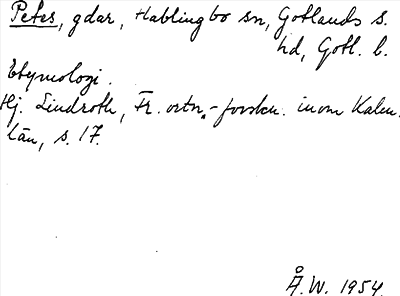 Petes, gdar, Hablingbo sn, Gotlands s.
hd, Gotl. l.
Etymologi.
Hj. Lindroth, Fr. ortn.-forskn. inom Kalm.
län, s. 17.
Å.W. 1954.